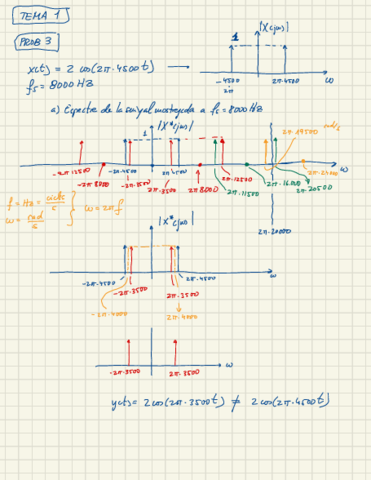 TEMA 1
PROB 3
|X(jω)|
1
x(t) = 2 cos(2π·4500t) →
-4500 2π
2π·4500
ω
fs = 8000 Hz
a) Espectre de la senyal mostrejada a fs = 8000 Hz
|X*(jω)|
1
2π·19500
rad/s
-2π·12500
-2π·8000
-2π·4500
-2π·3500
2π·3500
2π·4500
2π·8000
2π·11500
2π·12500
2π·16000
2π·20500
2π·24000
ω
2π·20000
f = Hz = cicles/s
ω = rad/s
ω = 2πf
|X*(jω)|
-2π·4500
-2π·3500
2π·3500
2π·4500
ω
-2π·4000
2π·4000
-2π·3500
2π·3500
ω
y(t) = 2cos(2π·3500t) ≠ 2cos(2π·4500t)